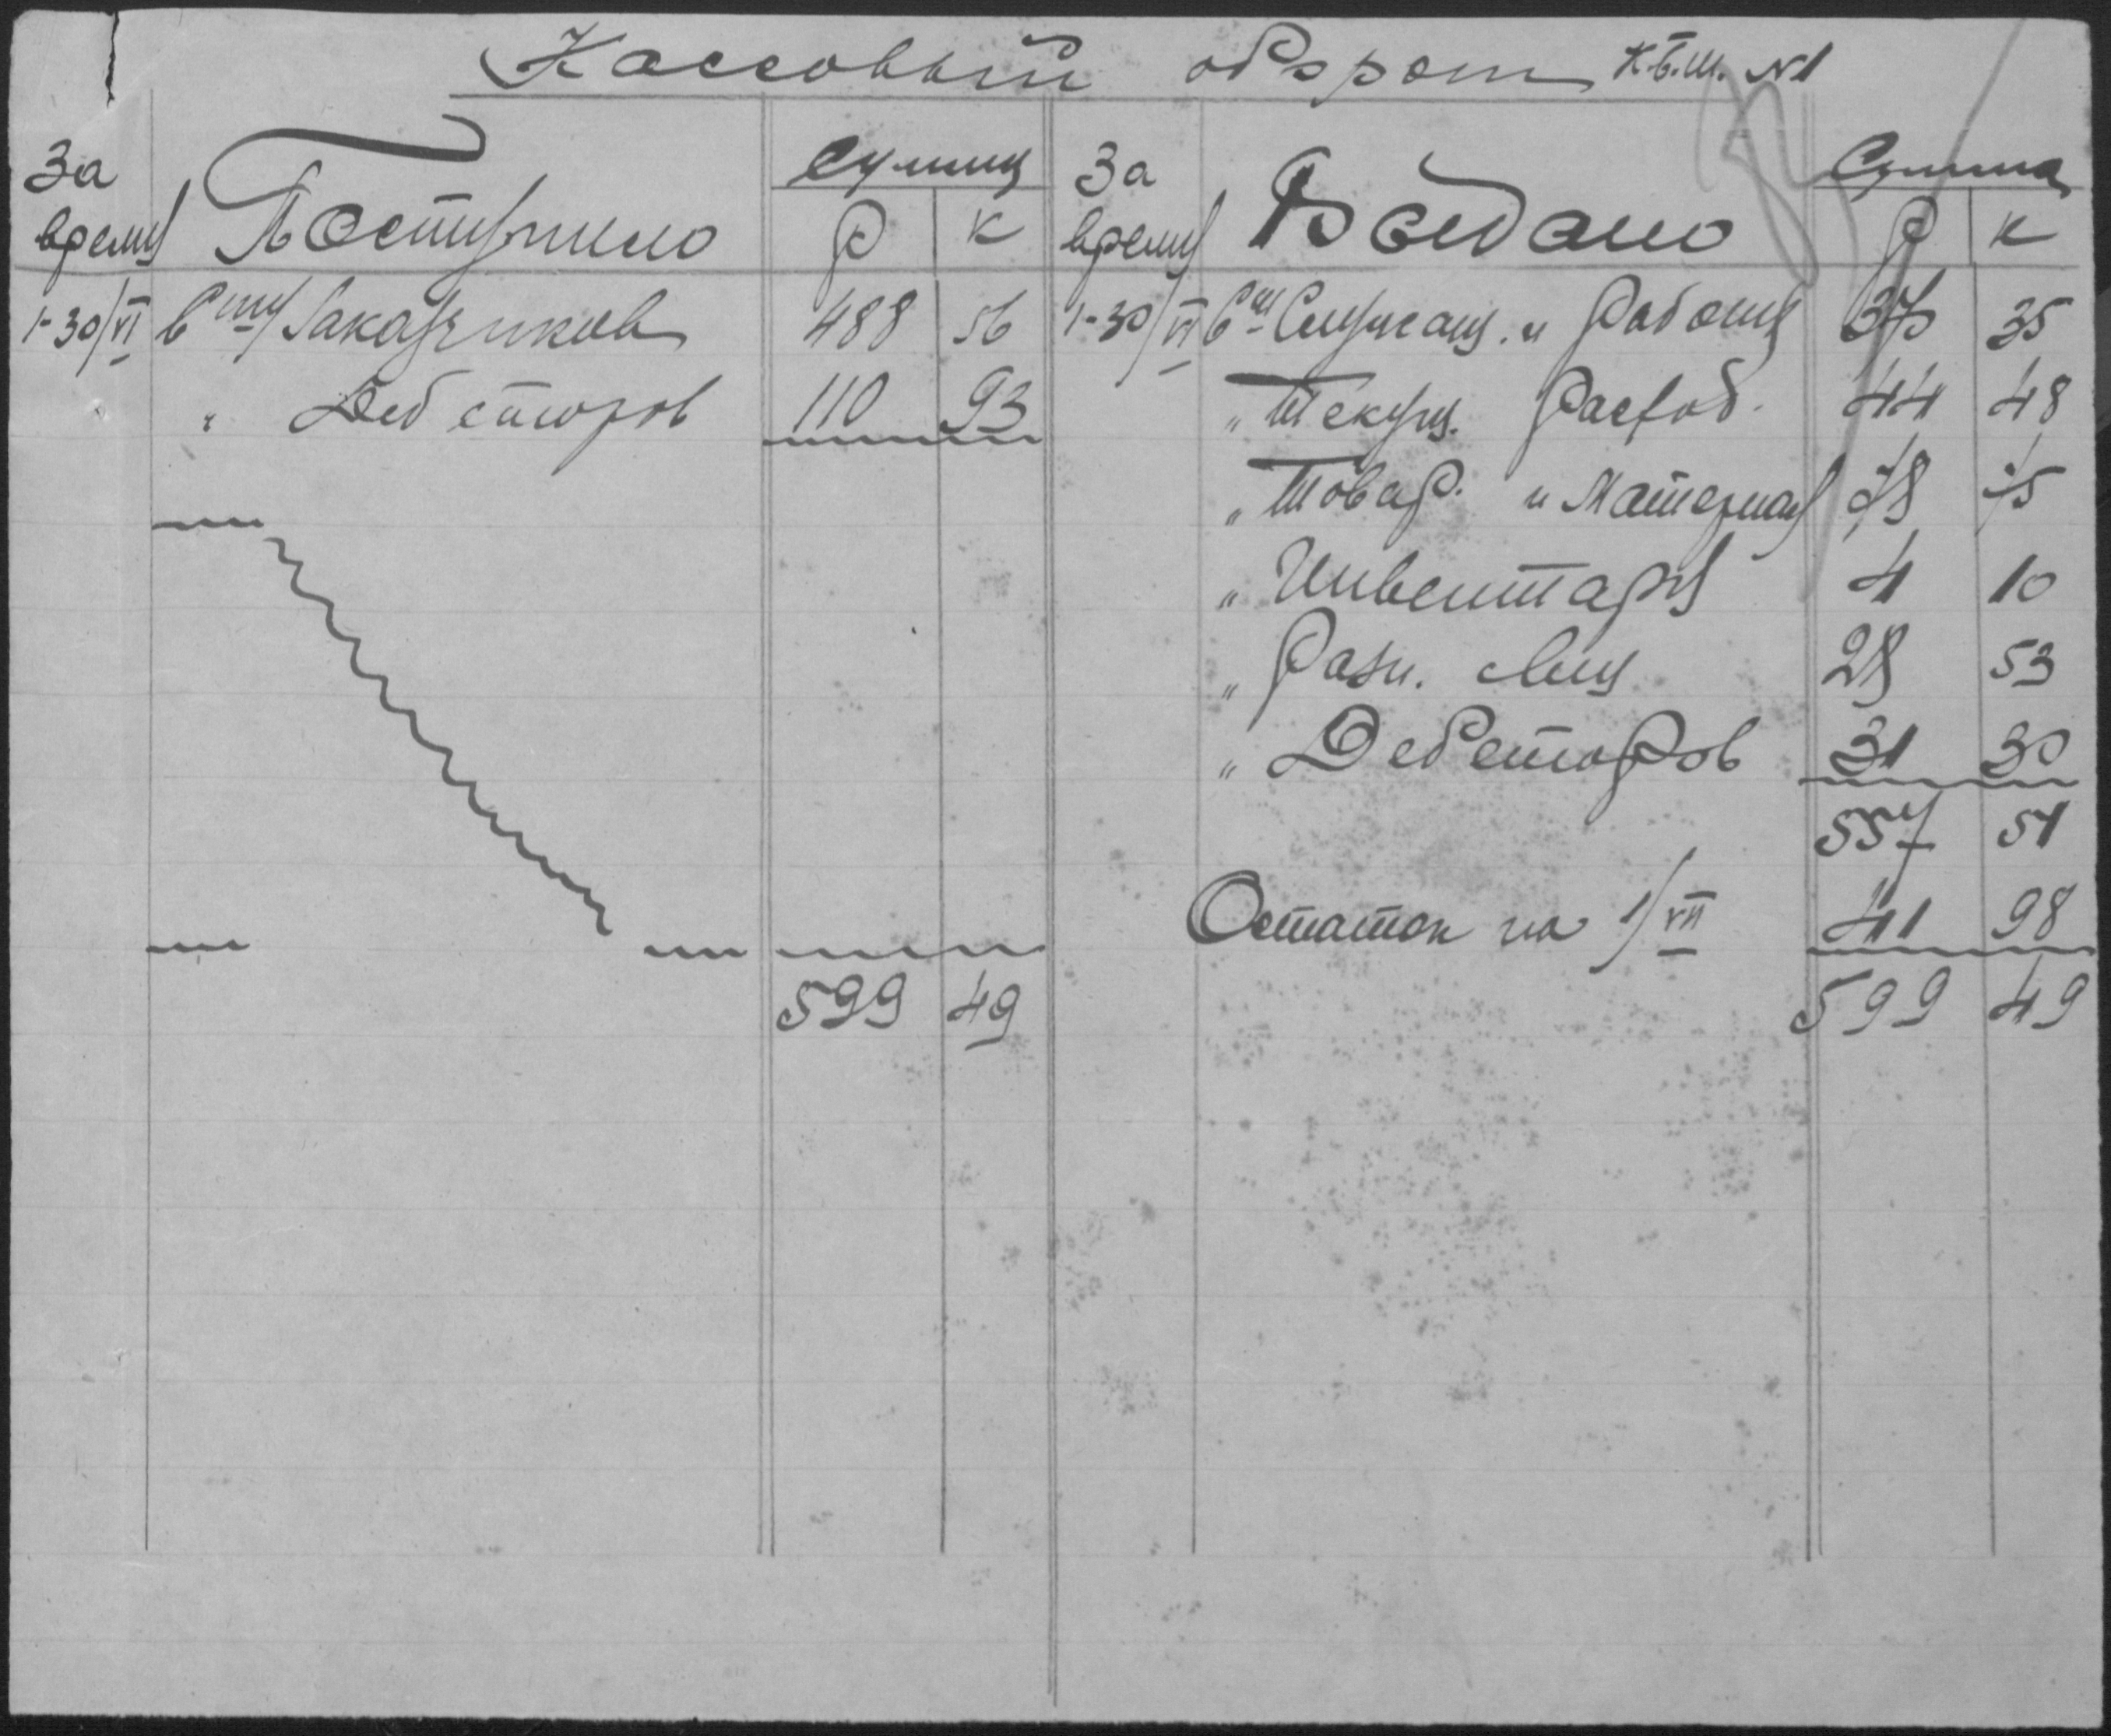 Кассовый оборот К.Б.Ш. №1
За время Поступило Сумма За время Выдано Сумма
р к р к
1-30/VI Заказчиков 488 56 1-30/VI Служащ. и Рабочих 370 35
" Дебеторов 110 93 " Текущ. Расход. 44 48
" Товар. и Материал 78 75
" Инвентаря 4 10
" Разн. Лиц 28 53
" Дебеторов 31 30
557 51
Остаток на 1/VII 41 98
599 49 599 49